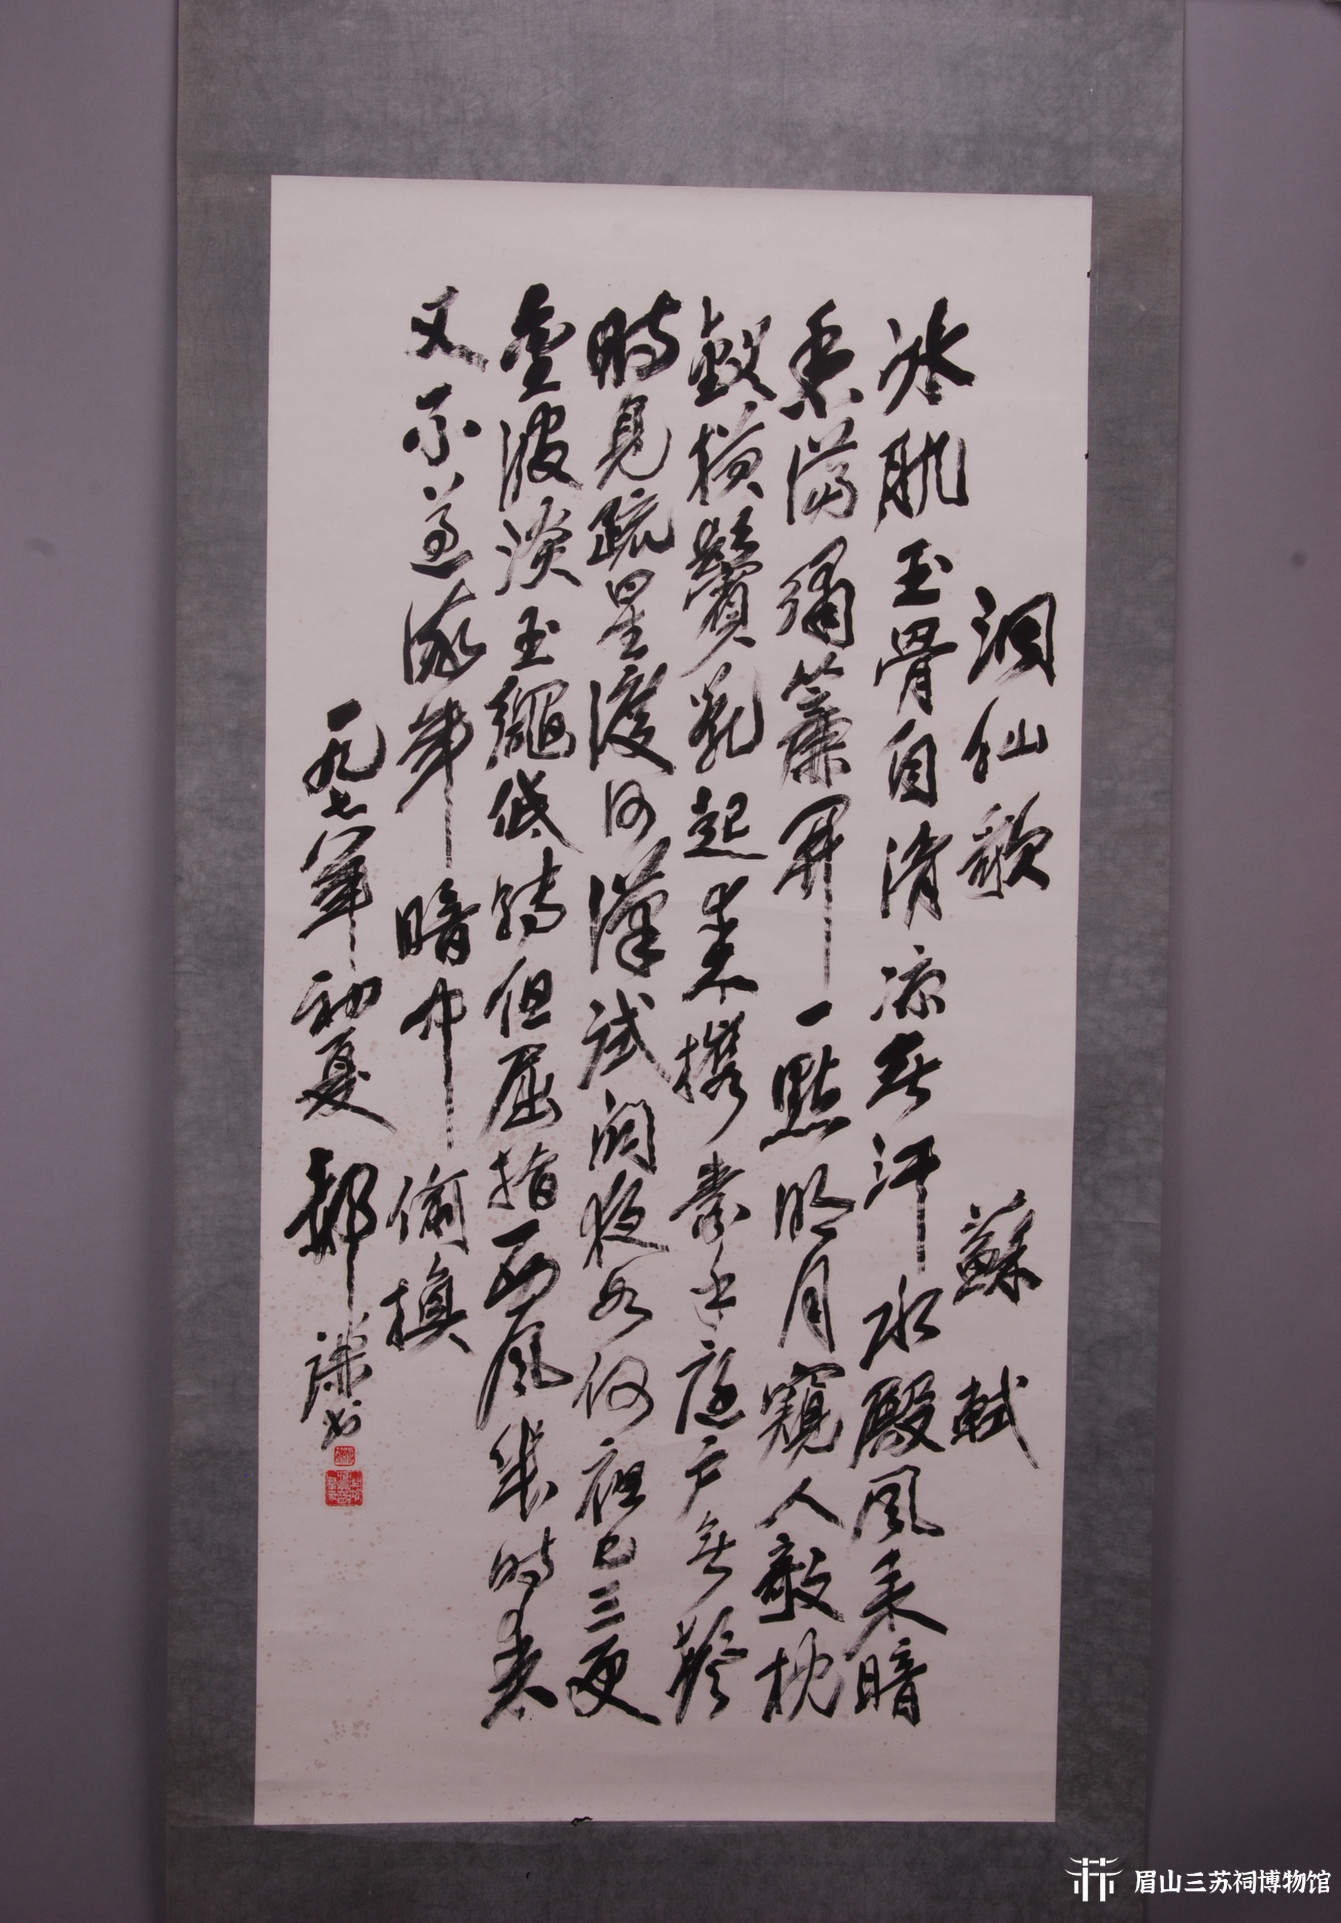 洞仙歌 蘇軾
冰肌玉骨自清凉無汗水殿風来暗
香滿繡簾開一點明月窺人敧枕
釵橫鬢亂起来攜素手庭戶無聲
時見疏星渡河漢試問夜如何夜已三更
金波淡玉繩低轉但屈指西風幾時来
又不道流年暗中偷換
一九七八年初夏 郝謙書
眉山三苏祠博物馆